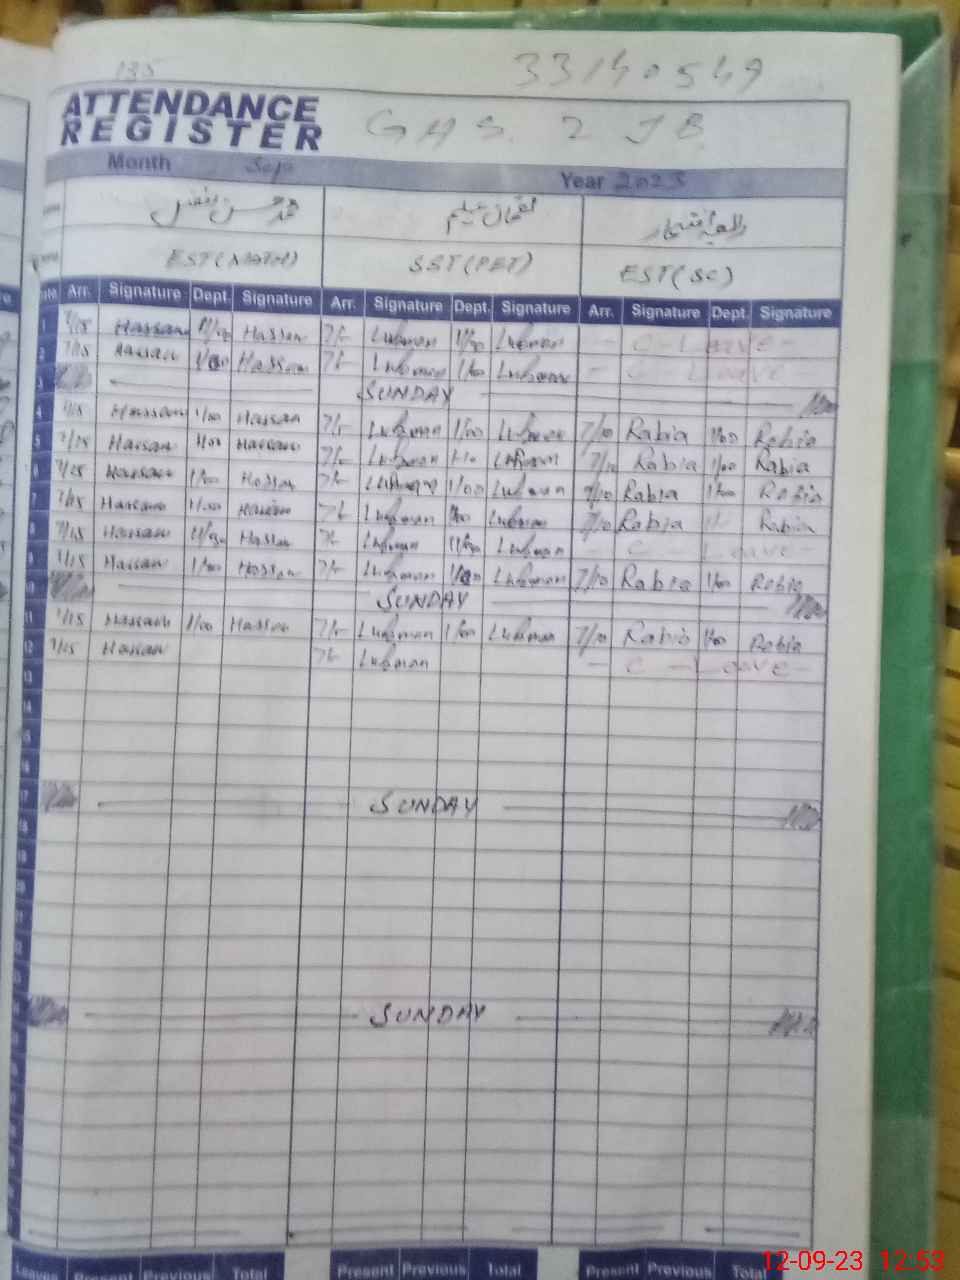 135 33140549
ATTENDANCE
REGISTER
GHS. 2 JB
Month Sep Year 2023
لقمان سلیم رابعہ افتخار
EST(MATH) SST(PET) EST(SC)
Arr. Signature Dept. Signature Arr. Signature Dept. Signature Arr. Signature Dept. Signature
1 7/15 Hassan 11/30 Hassan Luqman 11/30 Luqman - C - Leave -
2 7/15 Hassan Hassan Luqman 1/00 Luqman - C - Leave -
3 SUNDAY
4 7/15 Hassan 1/00 Hassan Luqman 1/00 Luqman 7/10 Rabia 1/00 Rabia
5 7/15 Hassan 1/00 Hassan Luqman Luqman 7/10 Rabia 1/00 Rabia
6 7/15 Hassan 1/00 Hassan Luqman 1/00 Luqman 7/10 Rabia 1/00 Rabia
7 7/15 Hassan 1/00 Hassan Luqman Luqman 7/10 Rabia Rabia
8 7/15 Hassan 11/30 Hassan Luqman 11/30 Luqman - C - Leave -
9 7/15 Hassan 1/00 Hassan Luqman 1/00 Luqman 7/10 Rabia 1/00 Rabia
10 SUNDAY
11 7/15 Hassan 1/00 Hassan Luqman 1/00 Luqman 7/10 Rabia 1/00 Rabia
12 7/15 Hassan Luqman - C - Leave -
13
14
15
16
17 SUNDAY
18
19
20
21
22
23
SUNDAY
Leaves Present Previous Total Present Previous Total Present Previous Total
12-09-23 12:53